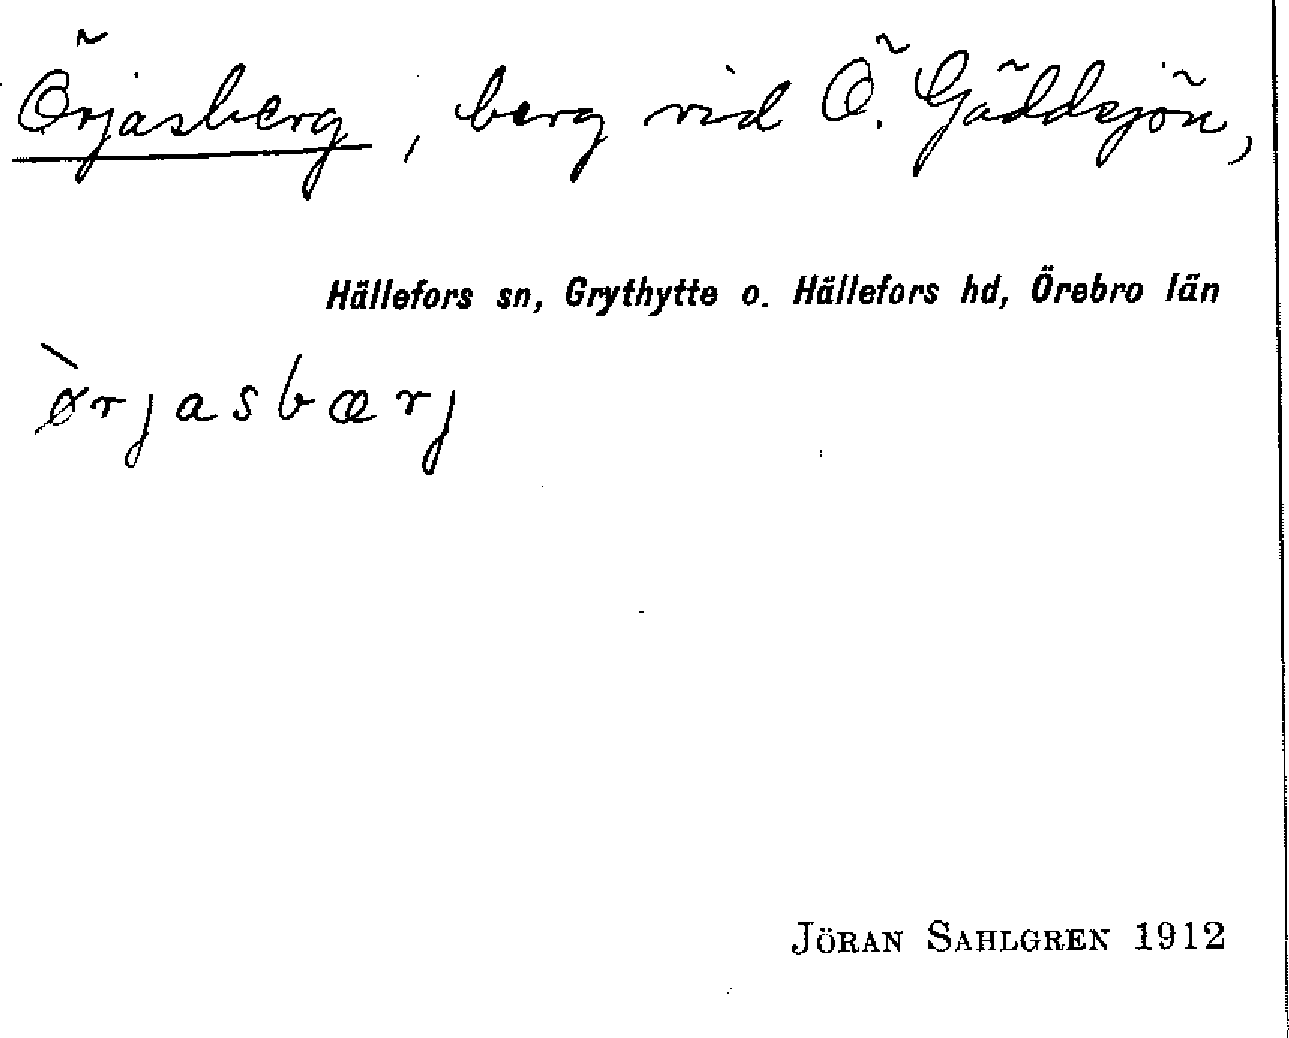 Örjasberg, berg vid Ö. Gäddsjön,
Hällefors sn, Grythytte o. Hällefors hd, Örebro län
ø̀rjasbærj
JÖRAN SAHLGREN 1912